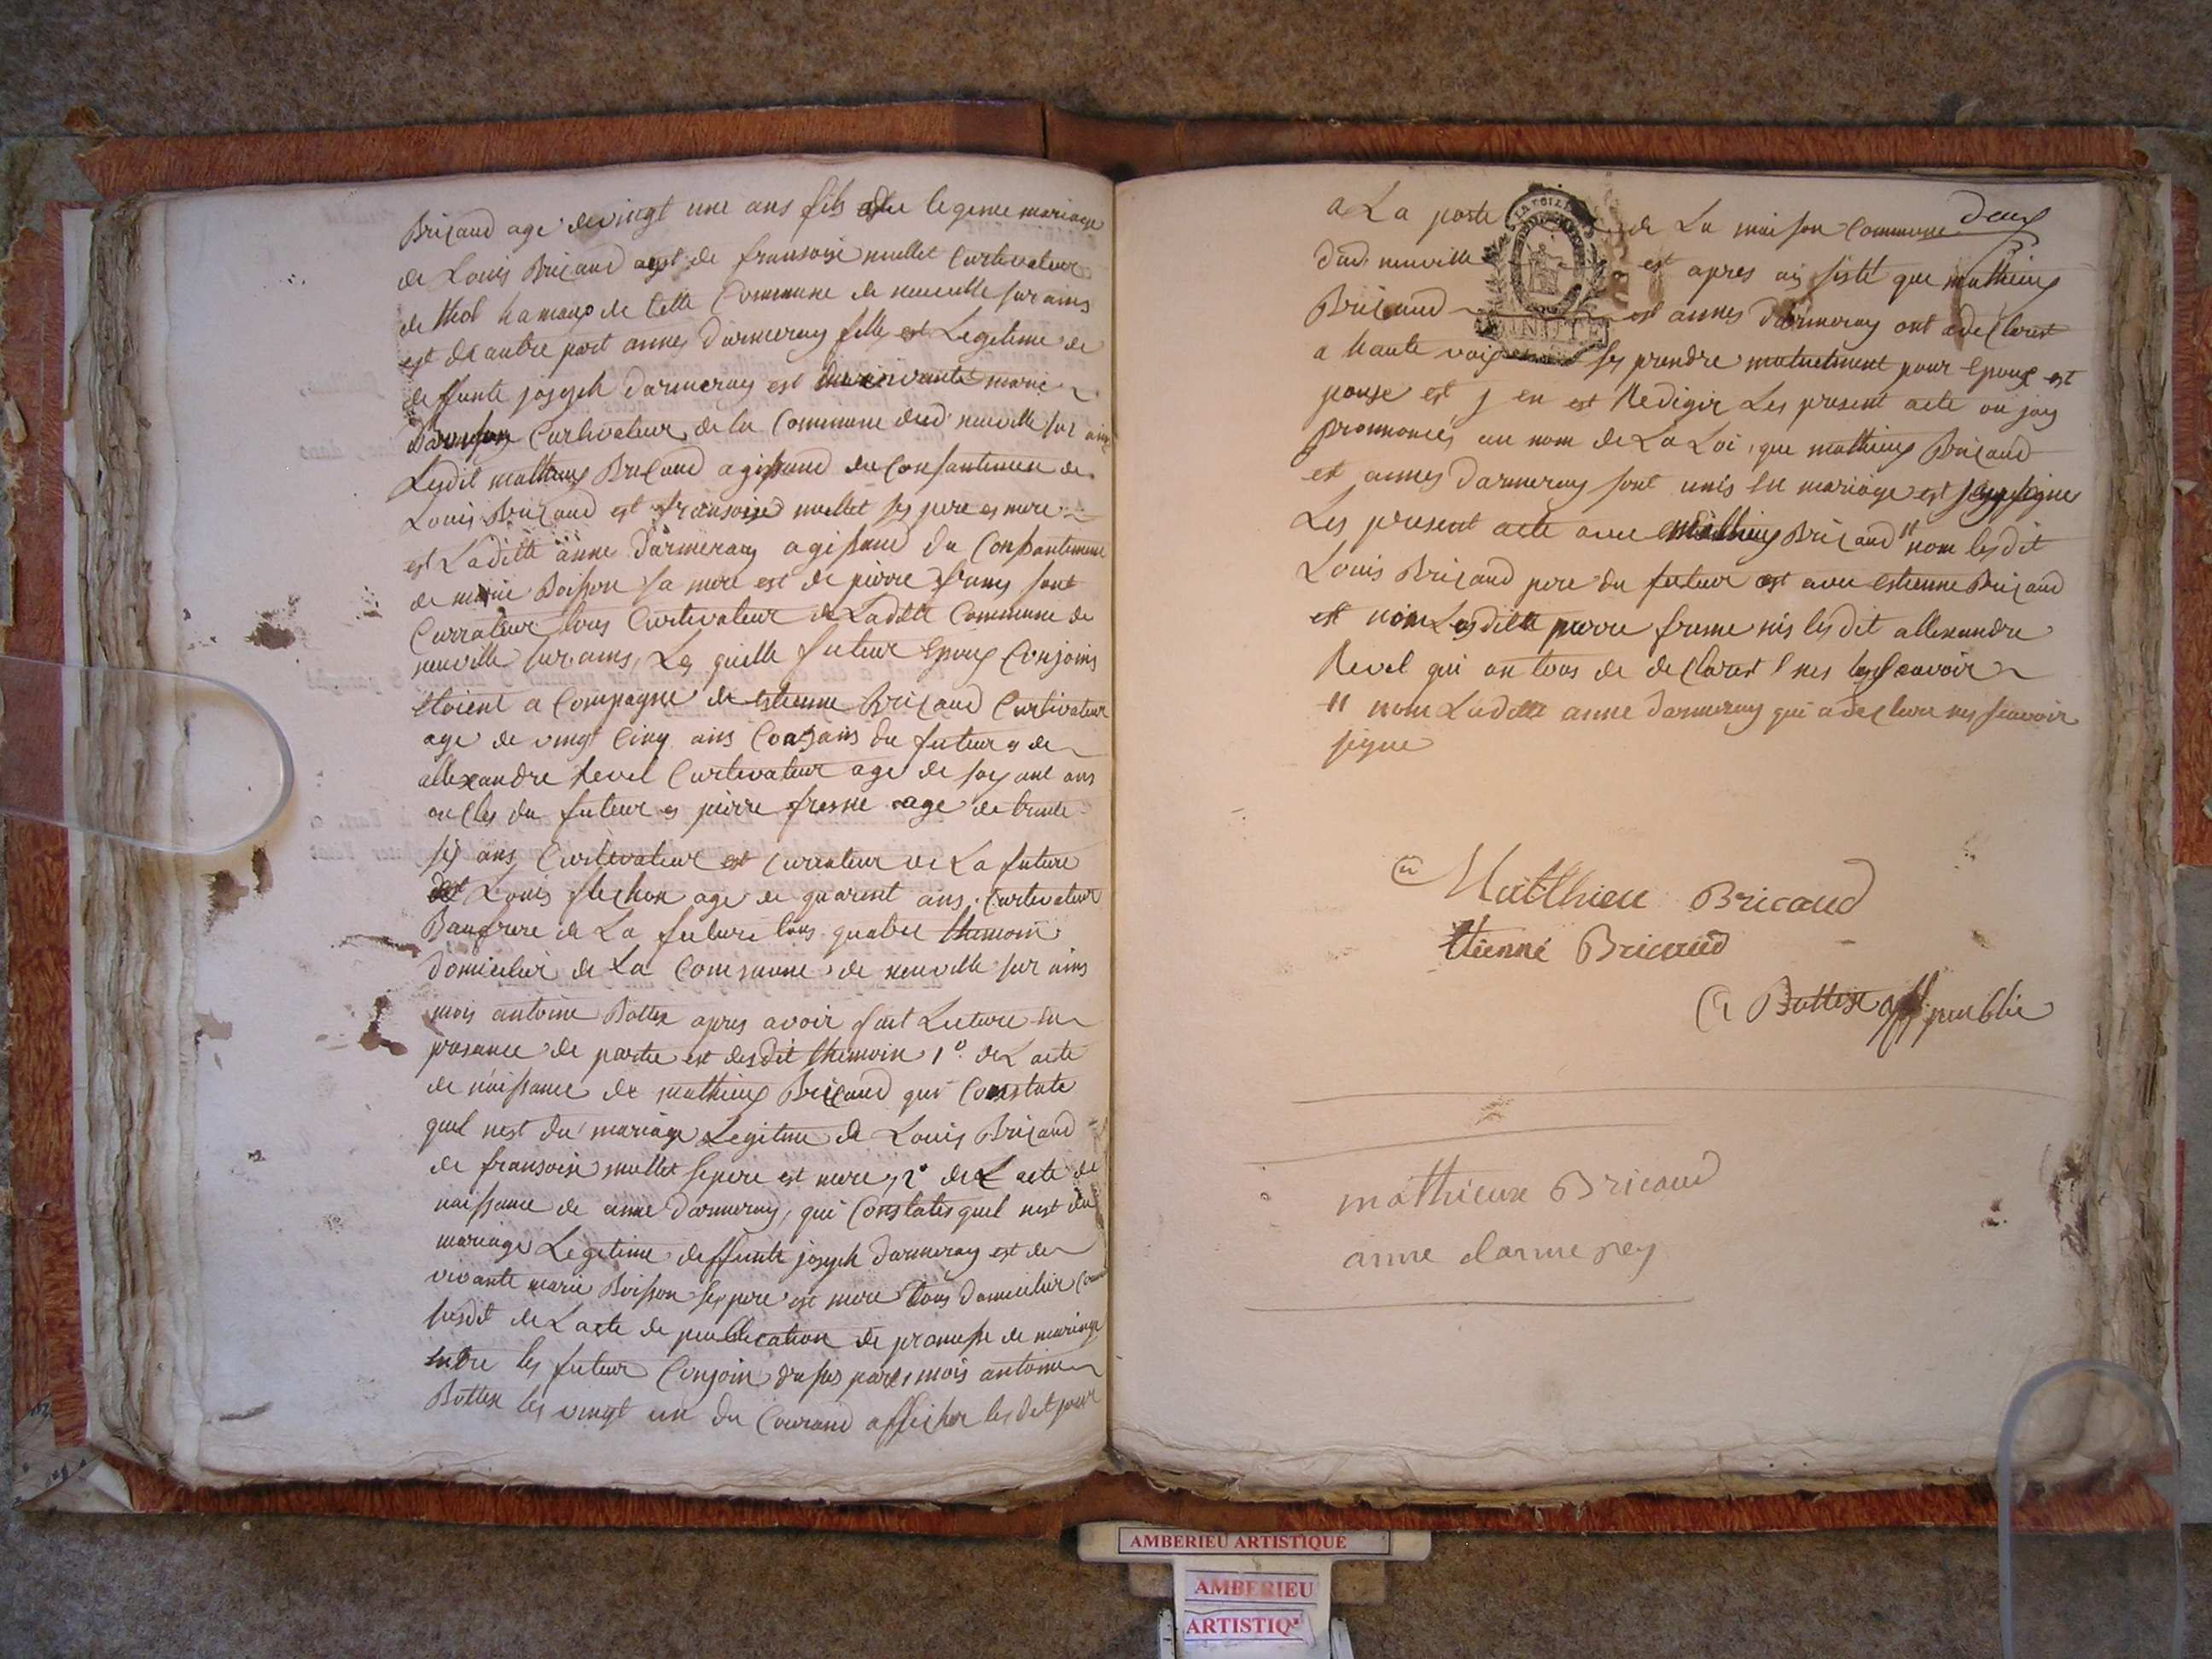 Bricaud age de vingt une ans fils du legeme mariage
de Louis Bricaud est de fransoise mullet Curtivateur
de thol hamaux de Cette Commune de neuville sur ains
est de autre part annes Darmeray fille est Legetime de
deffunte joseph Darmeray est vivante marie
Curtivateur de la Commune dud neuville sur ains
Lesdit mathieux Bricaud agissand du Consantemen de
Louis Bricaud est fransoise mullet ses pere es mere
est Laditte anne Darmeray agissand du Consantemene
de marie Boisson sa mere est de pierre
Currateur tous Curtivateur de Laditte Commune de
neuville sur ains, Les quelle futeur Epoux Conjoins
Etoient a Compagne de estienne Bricaud Curtivateur
age de vingt Cinq ans Cousains du futeur es de
allexandre Revel Curtivateur age de soixant ans
oncles du futeur es pierre fresne age de trente
six ans Curtivateur est Curateur de La future
Louis flechon age de quarent ans Curtivateur
Baufrere de La future tous quatre themoin
domicilié de La Commune de neuville sur ains
mois antoine Bottex apres avoir fait Lecture en
presance de partie est desdit themoin 1° de L acte
de naissance de mathieux Bricaud qui Constate
quel nest du mariage Legitime de Louis Bricaud
de fransoise mullet sepere est mere, 2° de L acte de
naissance de anne Darmeray, qui Constates quel nest du
mariage Legetime deffunte joseph Darmeray est de
vivante marie Boisson ses pere est mere tous domicilié
susdit de Lacte de peublication de promesse de mariage
entre les futeur Conjoin dresses pares mois antoine
Bottex les vingt un du Courand afficher les dit jour
a La porte de La maison Commune deux
dud. neuville est apres que mathieux
Bricaud est annes Darmeray ont adeclarest
a haute voix ses prendre mutuelment pour Epoux est
pouse est j en est Redigér Les present acte ou jais
pronnoncés au nom de La Loi, que mathieux Bricaud
et annes Darmeray sont unis En mariage est signe
Les present acte avec Mathieux Bricaud " nom lesdit
Louis Bricaud pere du futeur est avec estienne Bricaud
est nom Lesditte pierre fresne nis lesdit allexandre
Revel qui on tous de declarest Ines les scavoir
" nom Laditte anne Darmeray qui adeclare nes scavoir
signe
Matthieu Bricaud
Etienné Bricaud
Bottex off peublic
mathieux Bricaud
anne darmerey
AMBERIEU ARTISTIQUE
AMBERIEU
ARTISTIQ